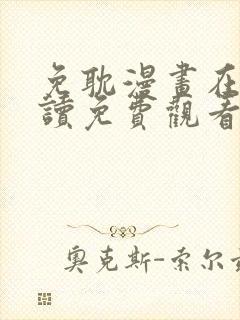 免耽漫畫在
讀免費觀看
奧克斯-索尔